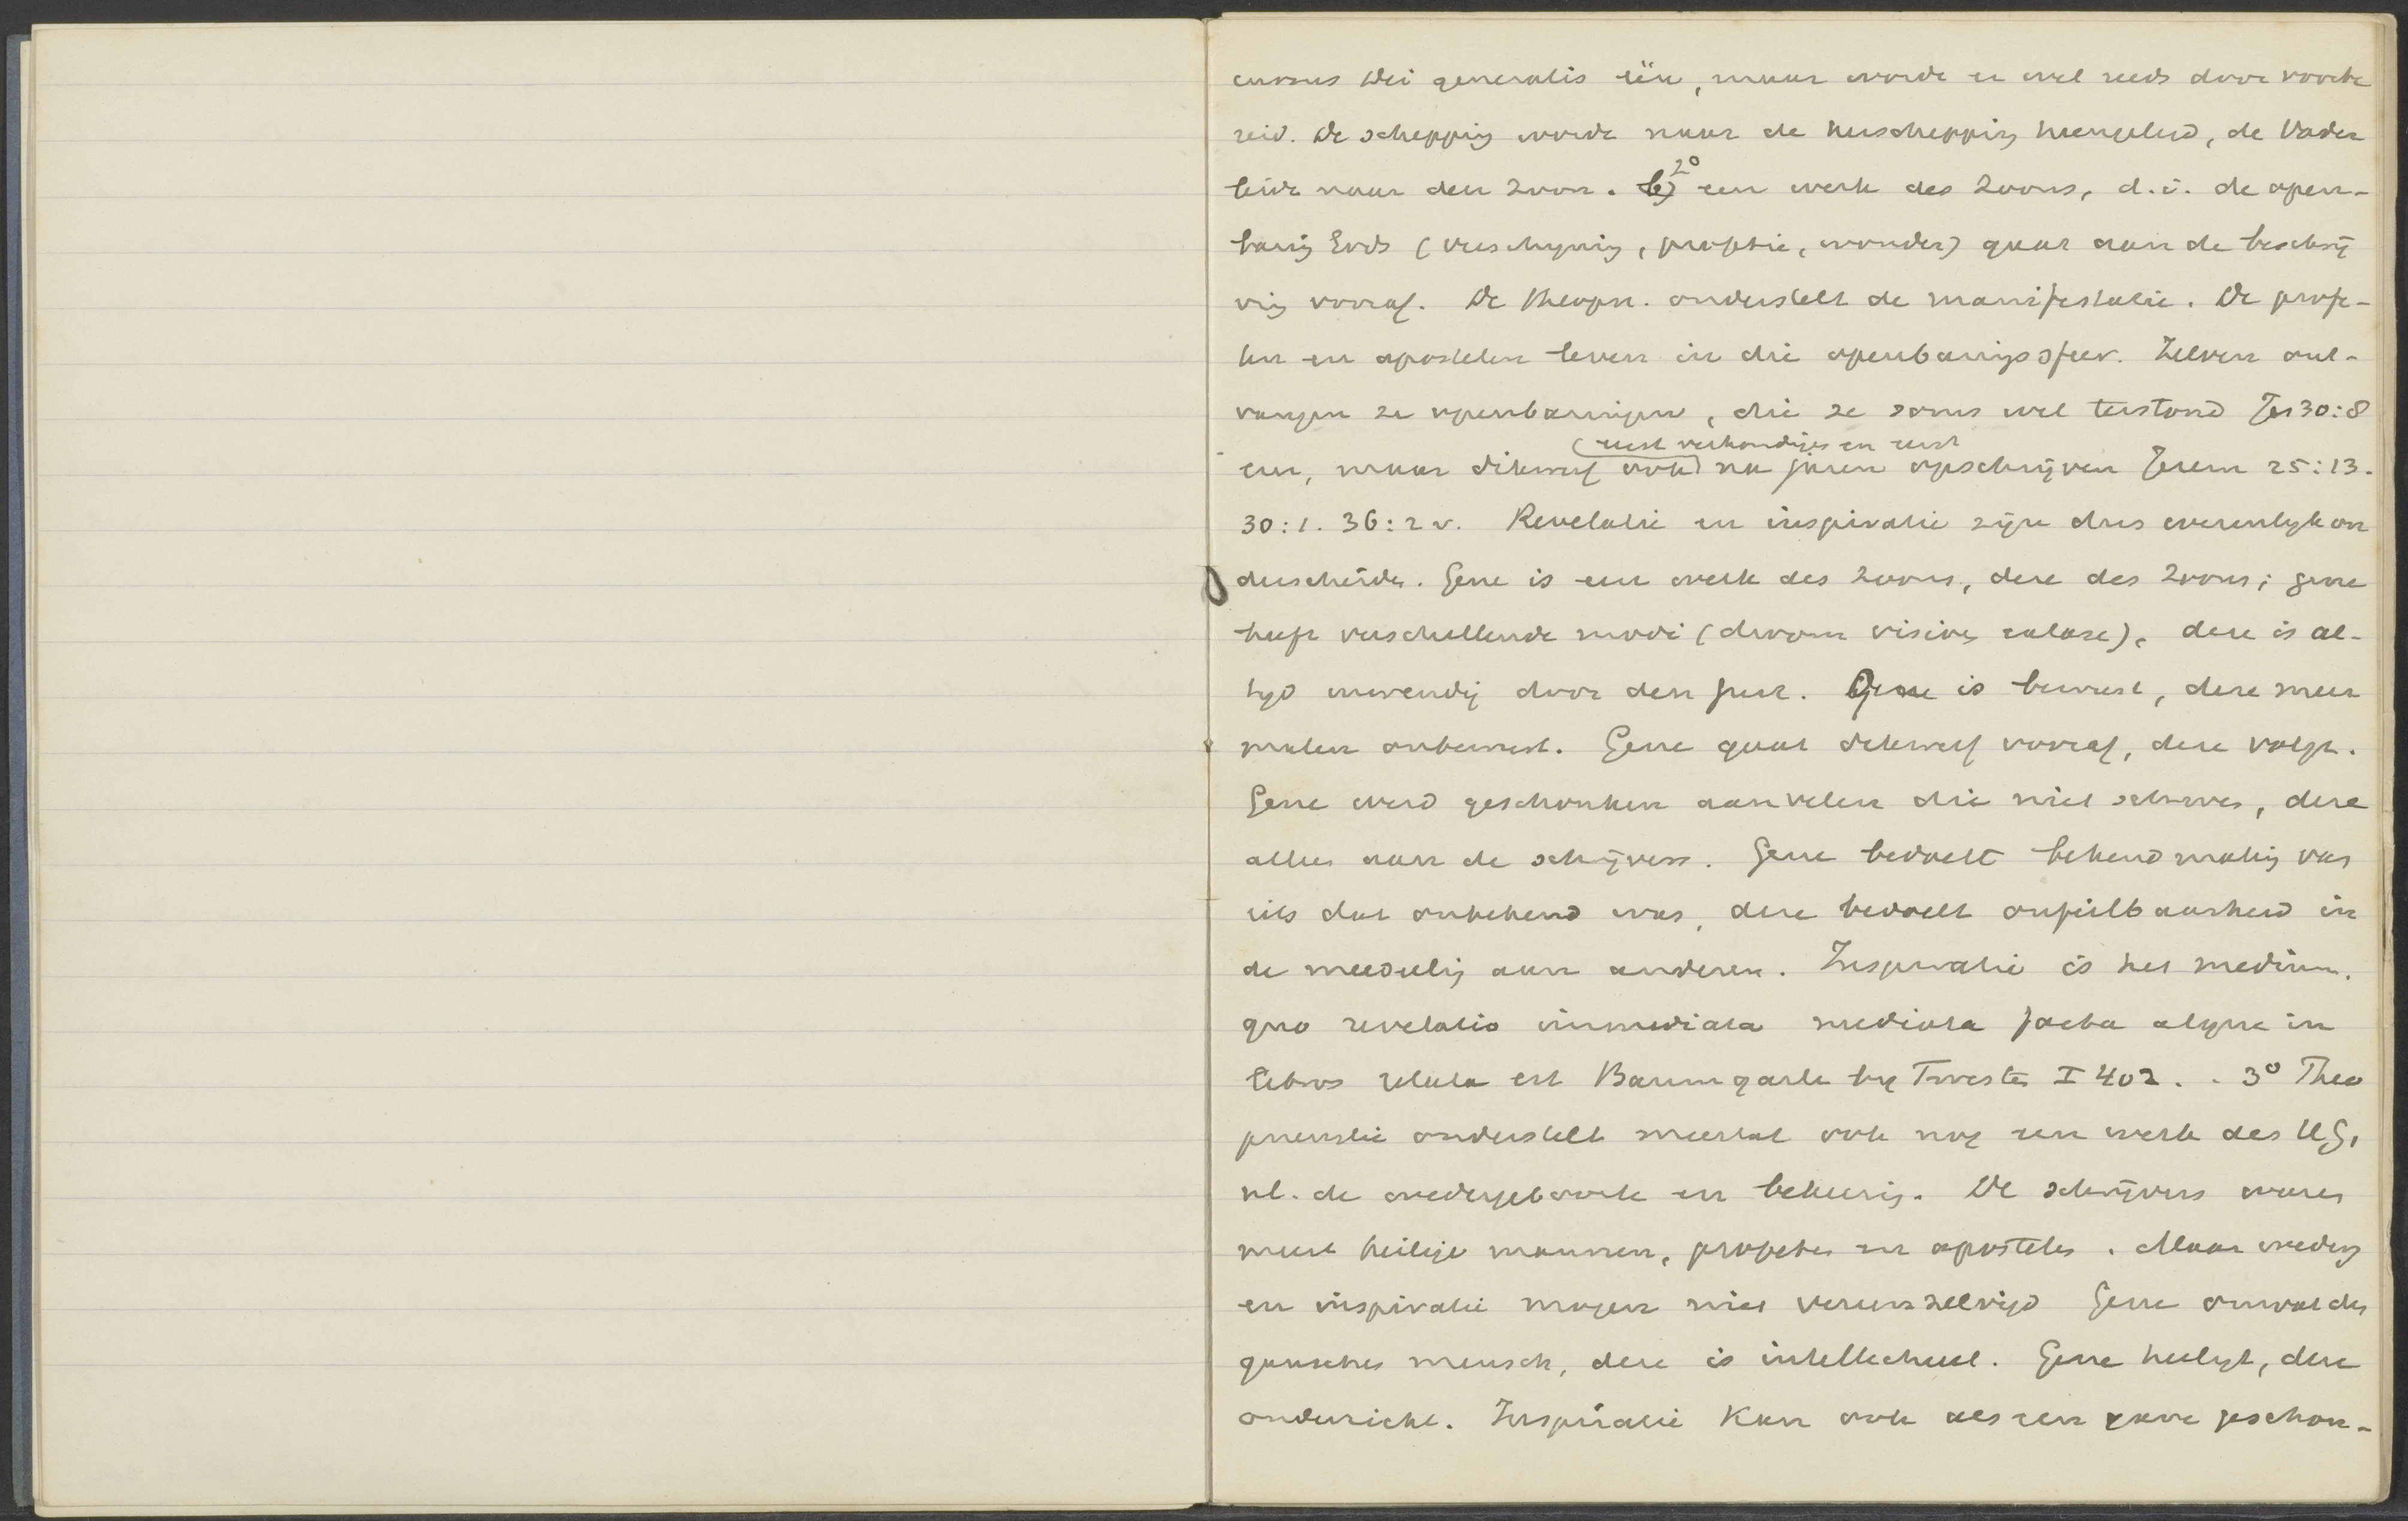 cursus Dei generalis één, maar wordt er wel reeds door voorbe
reid. De schepping wordt naar de herscheppig heengeleid, de Vader
leidt naar den Zoon. b) 2° een werk des Zoons, d.i. de open-
barig Gods (verschijning, profetie, wonder) gaat aan de beschrij
vig vooraf. De theopn. onderstelt de manifestatie. De profe-
ten en apostelen leven in die openbaringssfeer. Zelven ont-
vangen ze openbaringen, die ze soms wel terstond Jes 30:8
(eerst verkondigen en eerst
en, maar dikwerf ook) na jaren opschrijven Jerem 25:13.
30:1. 36:2 v. Revelatie en inspiratie zijn dus wezenlijk on
derscheiden. Gene is een werk des Zoons, deze des Zoons; gene
heeft verschillende modi (droom visioen extase), deze is al-
tijd inwendig door den Geest. Gene is bewust, deze meer
malen onbewust. Gene gaat dikwerf vooraf, deze volgt.
Gene werd geschonken aan velen die niet schreven, deze
alleen aan de schrijvers. Gene bedoelt bekendmakig van
iets dat onbekend was, deze bedoelt onfeilbaarheid in
de meedeelig aan anderen. Inspiratie is het medium.
quo revelatio immediata mediata facta atque in
libros relata est Baumgarte bij Twesten I 402. . 3° Theo
pneustie onderstelt meestal ook nog een werk des H.G,
nl. de wedergeboorte en bekeerig. De schrijvers waren
meest heilige mannen, profeten en apostelen. Maar wederg
en inspiratie mogen niet vereenzelvigd Gene omvat den
ganschen mensch, deze is intellectueel. Gene heiligt, deze
onderricht. Inspiratie kan ook als een gave geschon-